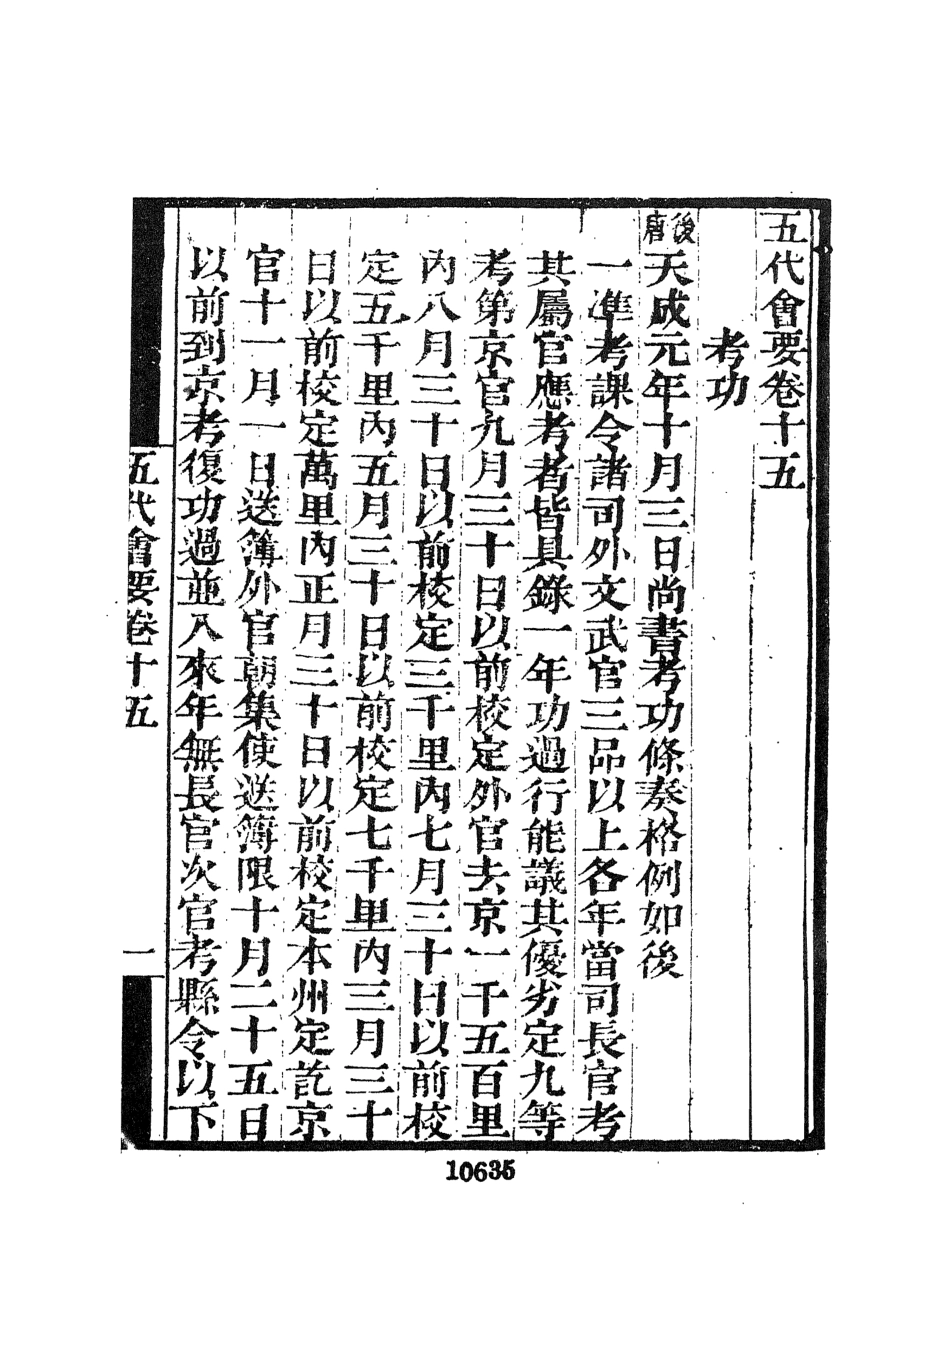 五代會要卷十五
考功
後唐天成元年十月三日尚書考功條奏格例如後
一準考課令諸司外文武官三品以上各年當司長官考
其屬官應考者皆具錄一年功過行能議其優劣定九等
考第京官九月三十日以前校定外官去京一千五百里
內八月三十日以前校定三千里內七月三十日以前校
定五千里內五月三十日以前校定七千里內三月三十
日以前校定萬里內正月三十日以前校定本州定訖京
官十一月一日送簿外官朝集使送簿限十月二十五日
以前到京考復功過並入來年無長官次官考縣令以下
五代會要卷十五
一
10635